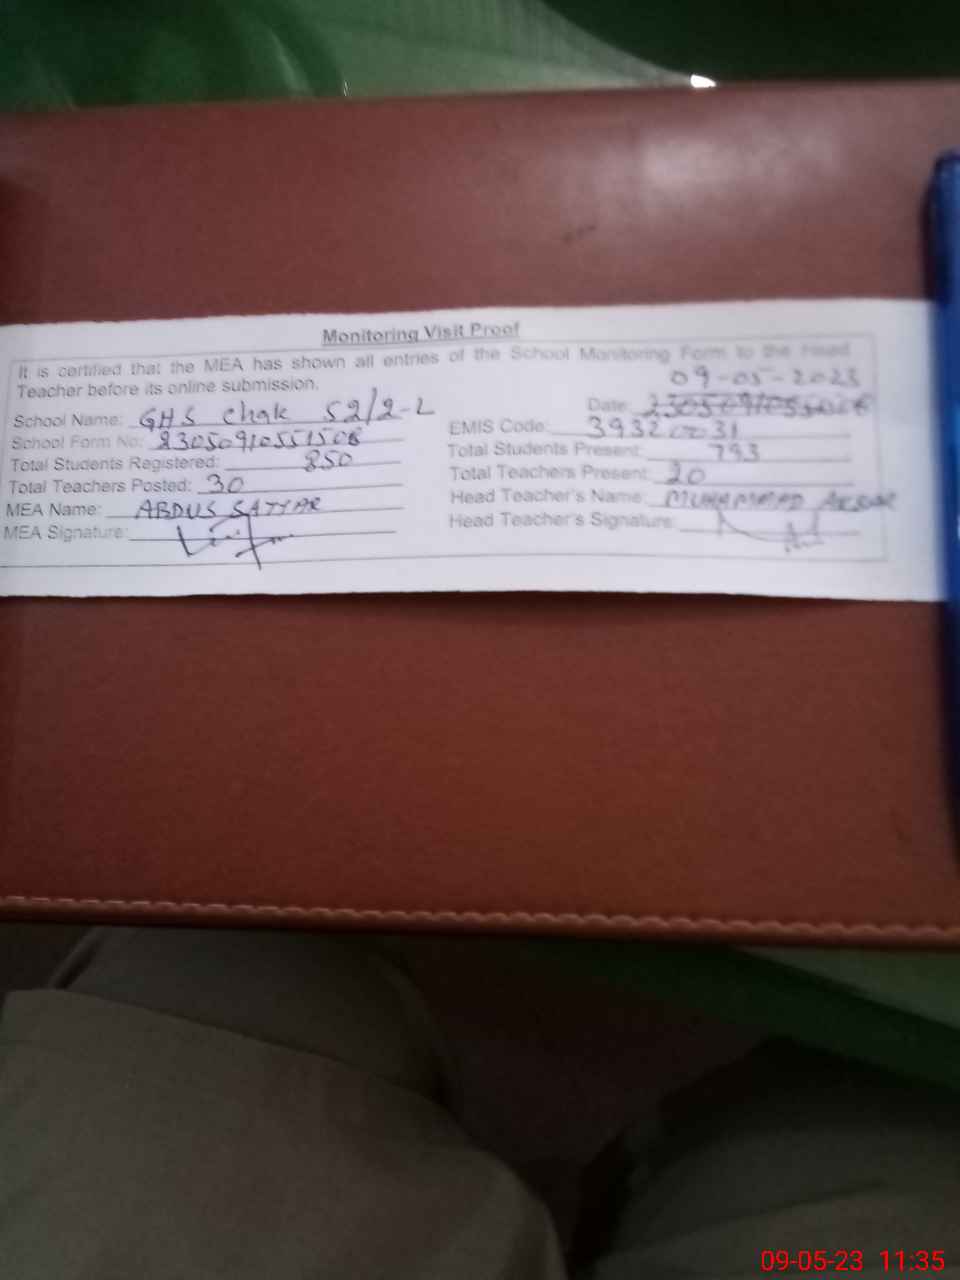 Monitoring Visit Proof
It is certified that the MEA has shown all entries of the School Monitoring Form to the Head
Teacher before its online submission.
09-05-2023
School Name: GHS Chak 52/2-L
Date:
School Form No: 23050910551508
EMIS Code: 39320031
Total Students Registered: 850
Total Students Present: 793
Total Teachers Posted: 30
Total Teachers Present: 20
MEA Name: ABDUS SATTAR
Head Teacher's Name: MUHAMMAD
MEA Signature:
Head Teacher's Signature:
09-05-23 11:35